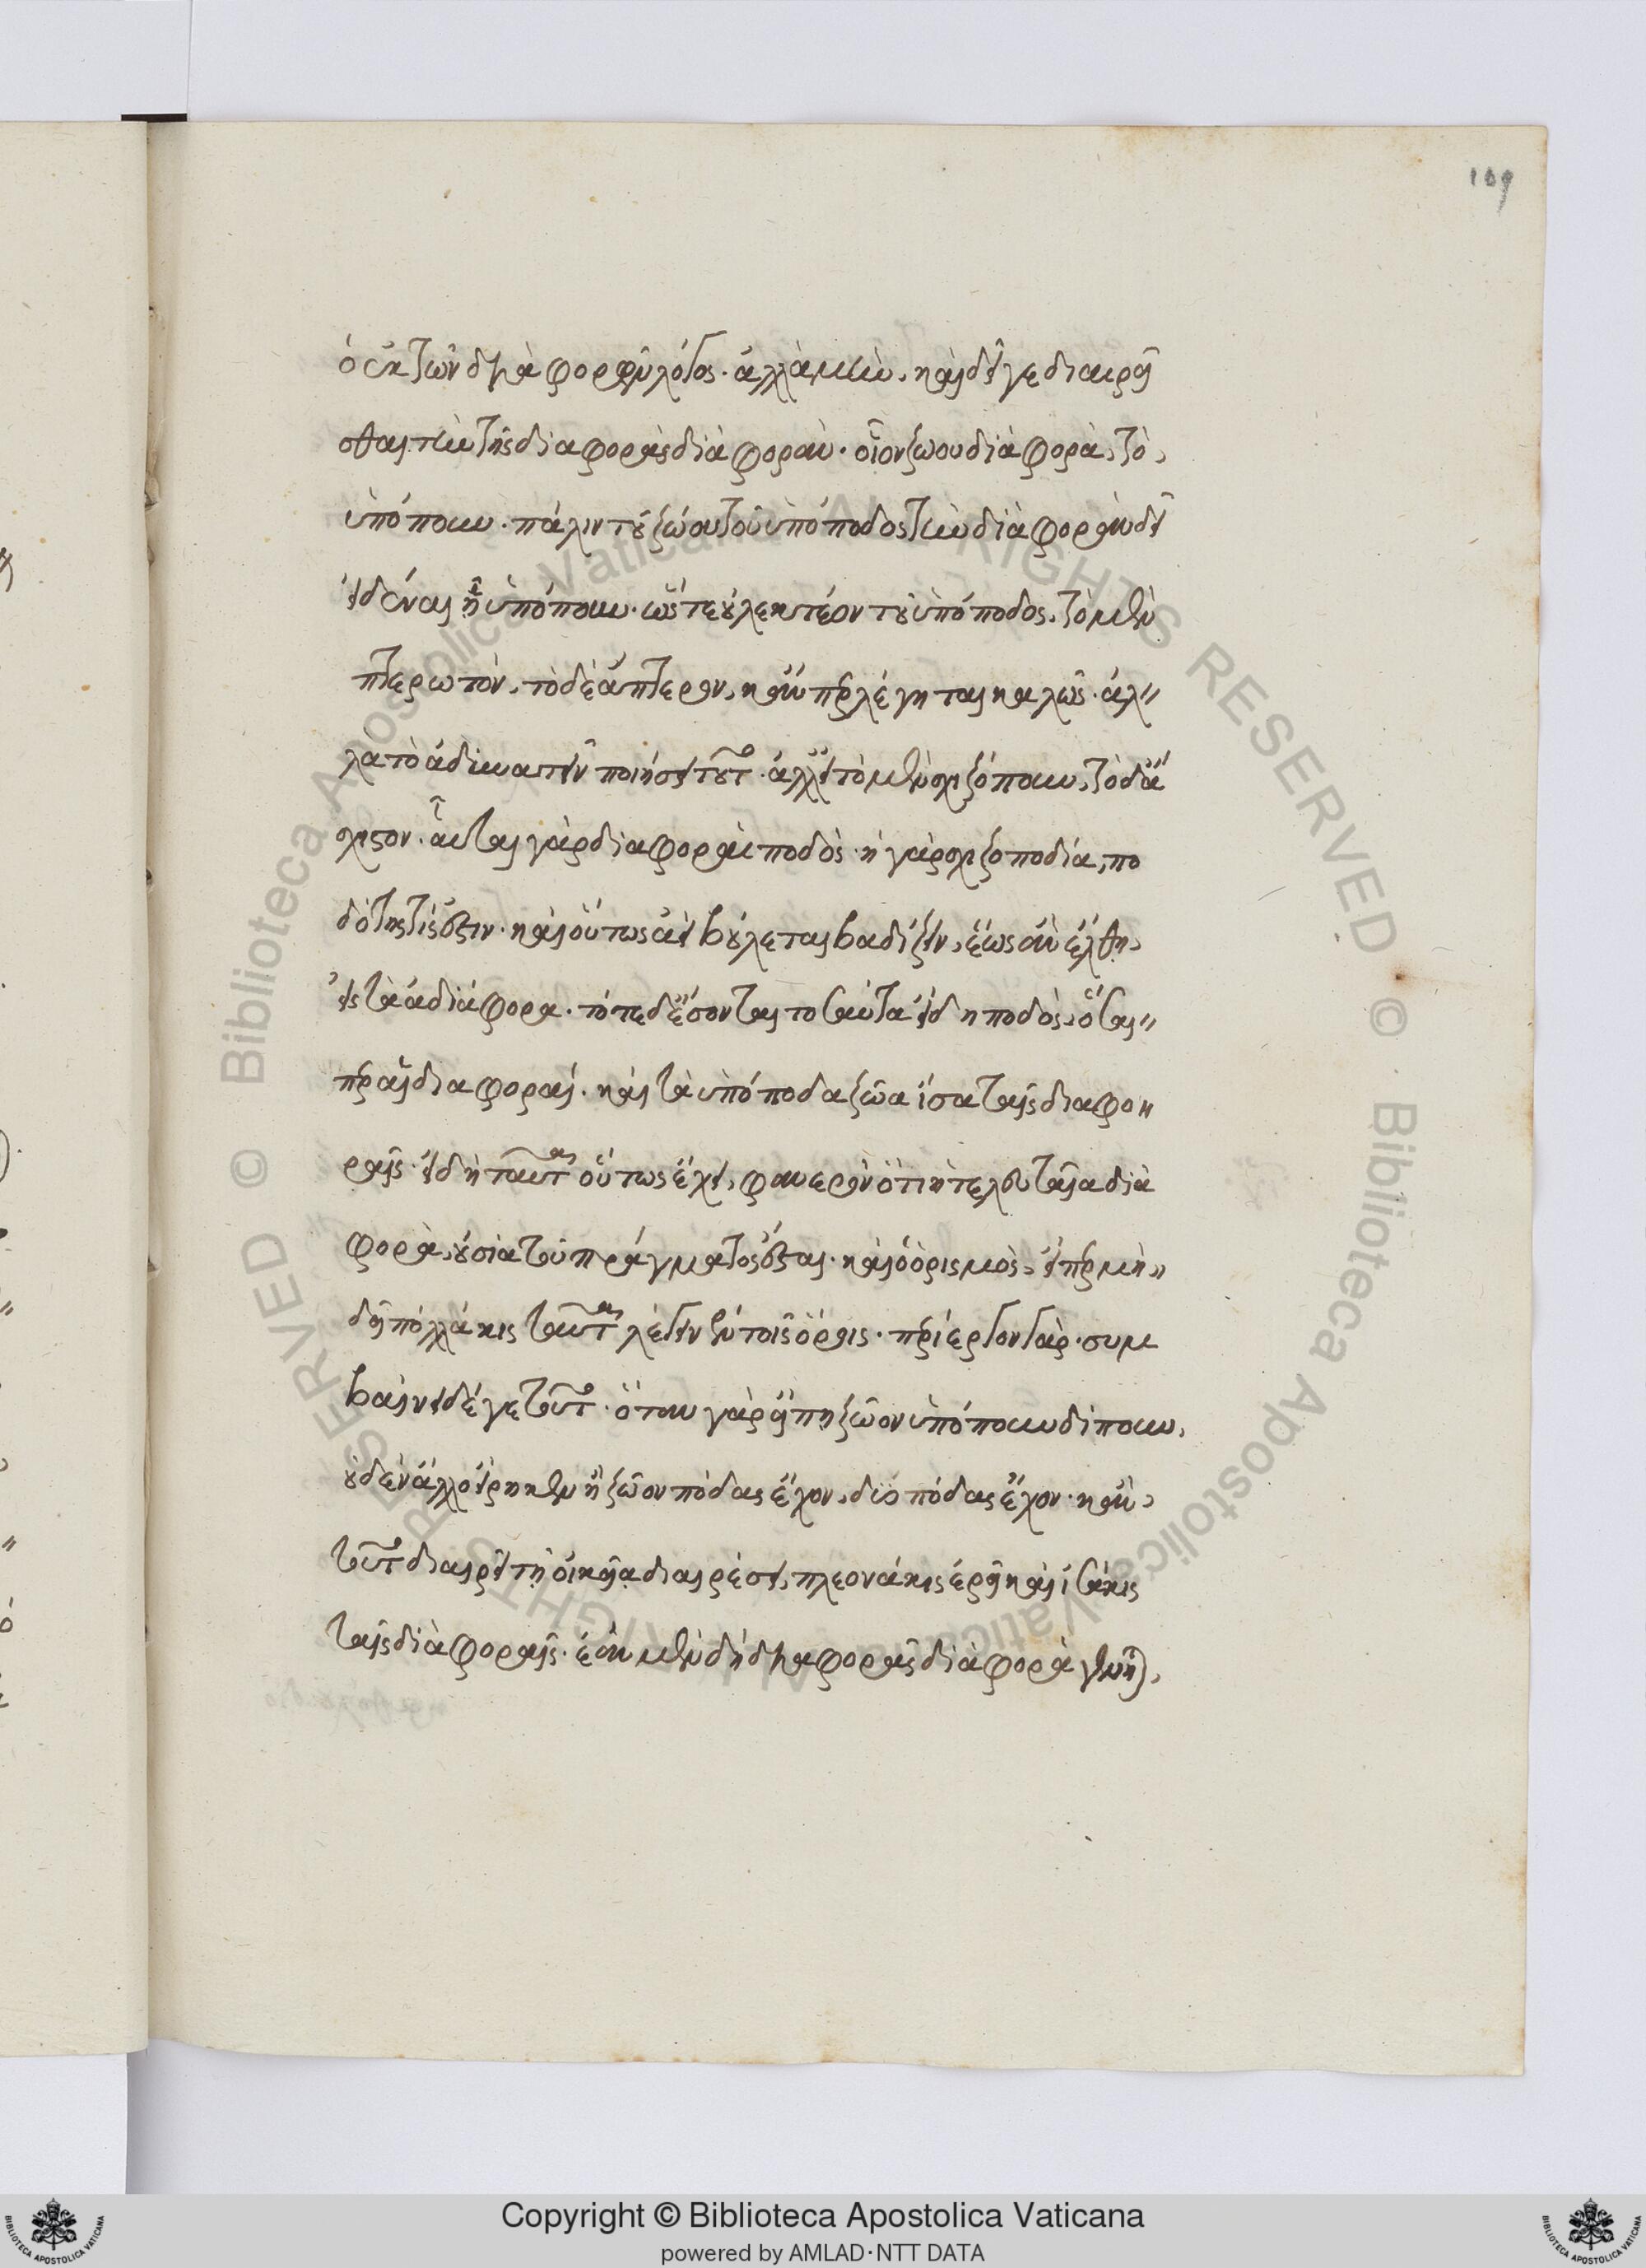 109
ὁ ἐκ τῶν διαφορῶν λόγος. ἀλλὰ μὴν, καὶ δεῖ γε διαιρεῖ
σθαι τὴν τῆς διαφορᾶς διαφοράν. οἷον ζώου διαφορὰ, τὸ,
ὑπόπουν. πάλιν τοῦ ζώου τοῦ ὑπόποδος τὴν διαφορὰν δεῖ
εἰδέναι ᾗ ὑπόπουν. ὥστε οὐ λεκτέον τοῦ ὑπόποδος, τὸ μὲν
πτερωτόν, τὸ δὲ ἄπτερον, κἄνπερ λέγηται καλῶς. ἀλ
λα τὸ ἀδυνατεῖν ποιήσει τοῦτο. ἀλλ' εἰ τὸ μὲν σχιζόπουν, τὸ δ' ἄ
σχιστον. αὗται γὰρ διαφοραὶ ποδός. ἡ γὰρ σχιζοποδία, πο
δότης τίς ἐστιν. καὶ οὕτως ἀεὶ βούλεται βαδίζειν, ἕως ἂν ἔλθη,
εἰς τὰ ἀδιάφορα. τότε δ' ἔσονται τοσαῦτα εἴδη ποδὸς, ὅσαι
περ αἱ διαφοραί. καὶ τὰ ὑπόποδα ζῶα ἴσα ταῖς διαφο
ραῖς. εἰ δὴ ταῦτα οὕτως ἔχει, φανερὸν ὅτι ἡ τελευταία δια
φορὰ, οὐσία τοῦ πράγματος ἔσται. καὶ ὁ ὁρισμὸς, εἴπερ μὴ
δεῖ πολλάκις ταῦτα λέγειν ἐν τοῖς ὅροις. περίεργον γάρ. συμ
βαίνει δέ γε τοῦτο. ὅταν γὰρ εἴπη ζῶον ὑπόπουν δίπουν,
οὐδὲν ἄλλο εἴρηκεν ἢ ζῶον πόδας ἔχον, δύο πόδας ἔχον. κἂν,
τοῦτο διαιρεῖ τῇ οἰκεία διαιρέσει, πλεονάκις ἐρεῖ καὶ ἰσάκις
ταῖς διαφοραῖς. ἐὰν μὲν δὴ διαφορᾶς διαφορὰ γένηται,
Copyright © Biblioteca Apostolica Vaticana
powered by AMLAD·NTT DATA